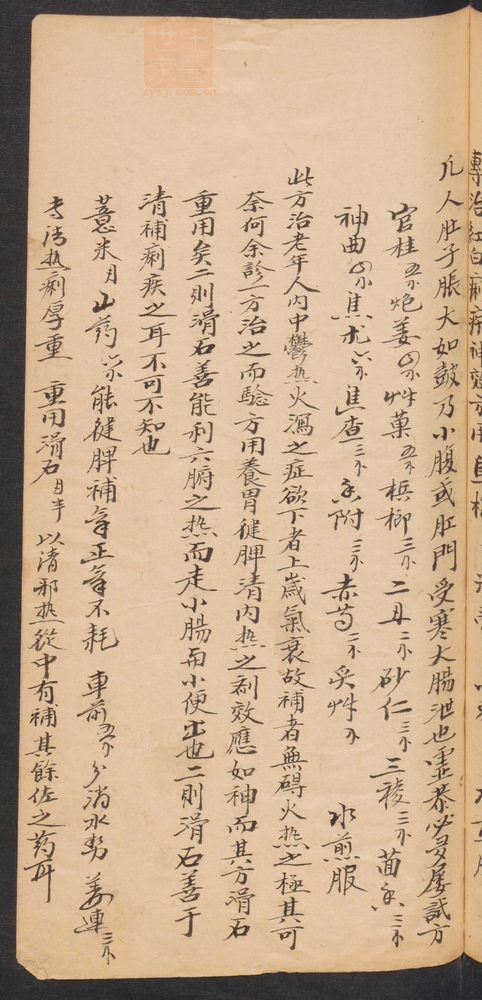 專治紅白痢疾神效方用
凡人肚子脹大如鼓乃小腹或肛門受寒大腸泄也虛恭必多屡試方
官桂五分炮姜四分艸菓五分梹榔三分二丑二分砂仁三分三稜三分茴香三分
神曲四分焦术六分焦查三分香附三分赤芍二分炙艸分 水煎服
此方治老年人內中鬱热火瀉之症欲下者上嵗氣衰故補者無碍火热之極其可
奈何余診一方治之而驗方用養胃健脾清內热之剂效應如神而其方滑石
重用矣二則滑石善能利六腑之热而走小腸而小便出也二則滑石善于
清補痢疾之耳不可不知也
薏米 山药六分能健脾補氣正氣不耗 車前五分分消水勢 姜連三分
专清热痢厚重 重用滑石 以清邪热從中有補其餘佐之药耳